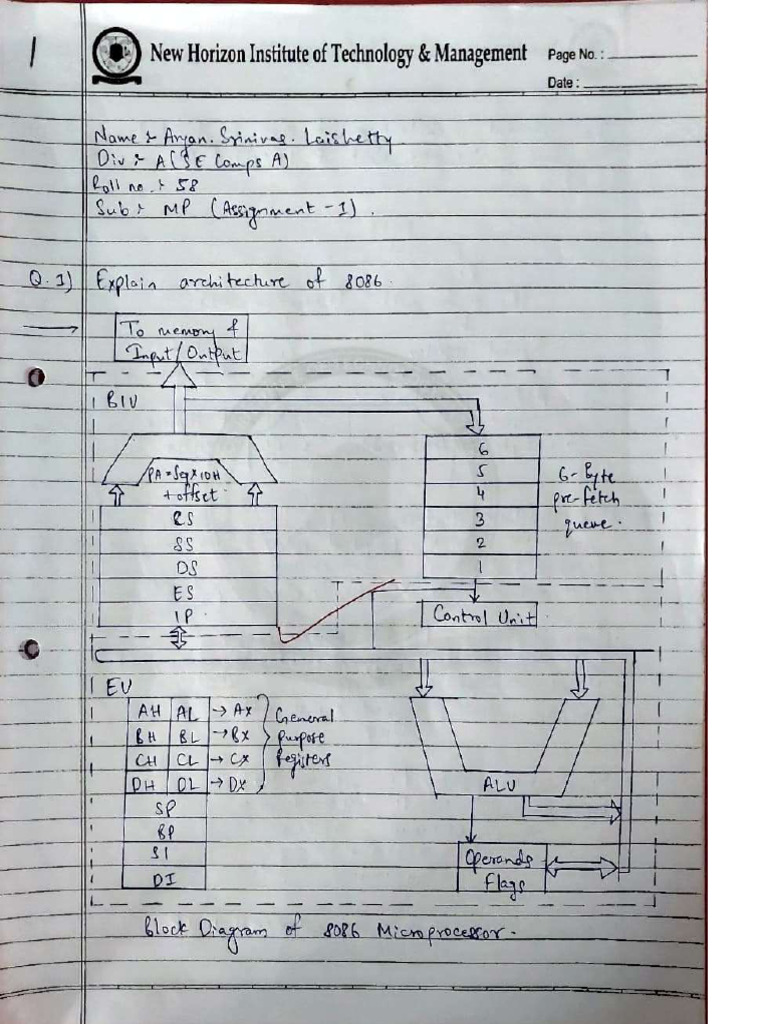 1
New Horizon Institute of Technology & Management
Page No. :
Date :
Name :- Aryan. Srinivas. Laishetty
Div :- A (SE Comps A)
Roll no. :- 58
Sub :- MP (Assignment - 1).
Q.1) Explain architecture of 8086.
To memory &
Input/Output
BIU
PA = Seg x 10H
+ offset
CS
SS
DS
ES
IP
6
5
4
3
2
1
6-Byte
pre-fetch
queue.
Control Unit
EU
AH AL → AX
BH BL → BX
CH CL → CX
DH DL → DX
General
Purpose
Registers
SP
BP
SI
DI
ALU
Operands
Flags
Block Diagram of 8086 Microprocessor.